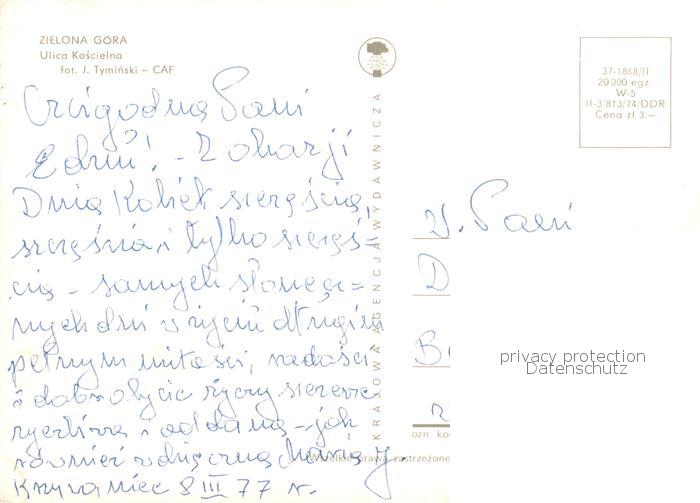 ZIELONA GÓRA
Ulica Kościelna
fot. J. Tymiński — CAF
KRAJOWA AGENCJA WYDAWNICZA
37-1868/II
20 000 egz.
W-5
II-3/813/74/DDR
Cena zł 3.—
Czcigodna Pani
! - Z okazji
Dnia Kobiet szczęścia,
szczęścia i tylko szczęś=
cia - samych słonecz=
nych dni w życiu długim
pełnym miłości, radości
i dobrobycie życzy szczerze
życzliwa i oddana - jak
również wdzięczna
8 III 77 r.
W. Pani
D
B
privacy protection
Datenschutz
ozn. ko
Wszelkie prawa zastrzeżone